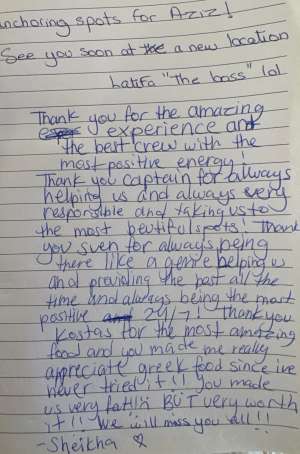 anchoring spots for Aziz!
See you soon at the a new location
Latifa "The boss" lol
Thank you for the amazing
experience and
the best crew with the
most positive energy!
Thank you captain for always
helping us and always very
responsible and taking us to
the most beutiful spots! Thank
you sven for always being
there like a genie helping us
and providing the best all the
time and always being the most
positive and 24/7! Thank you
Kostas for the most amazing
food and you made me really
appreciate greek food since ive
never tried it!! you made
us very BUT very worth
it!! We will miss you all!!
- Sheikha